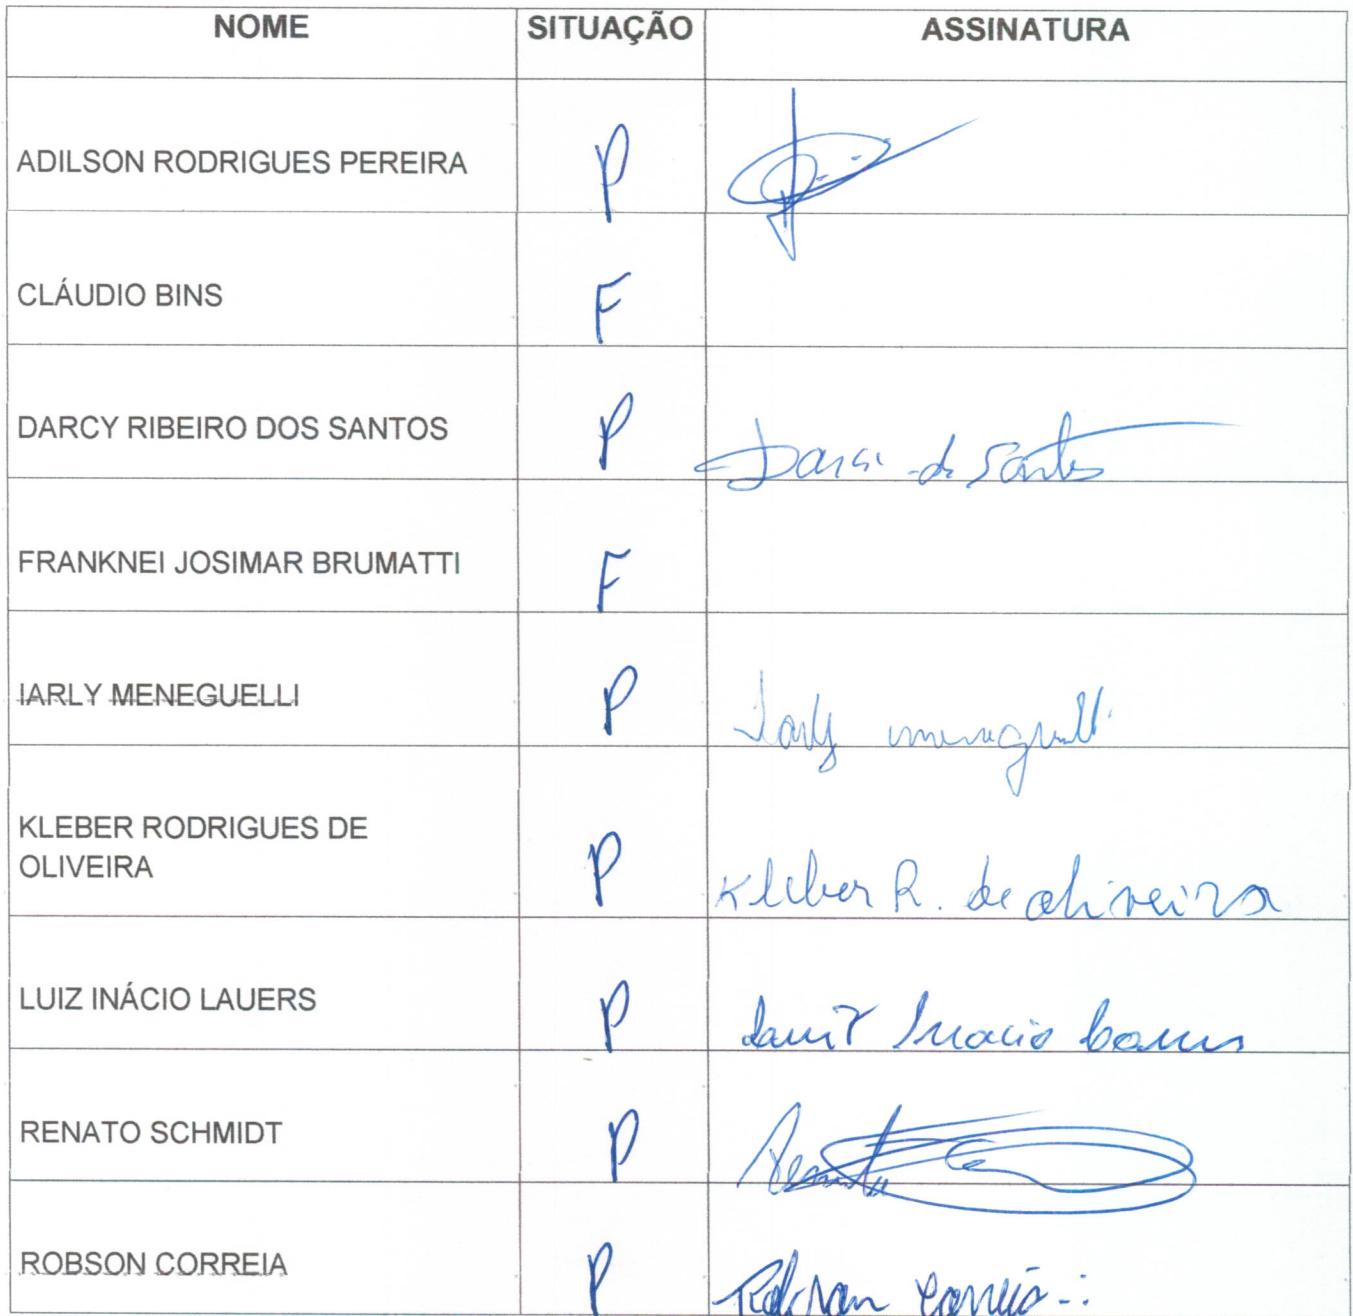 NOME SITUAÇÃO ASSINATURA
ADILSON RODRIGUES PEREIRA P
CLÁUDIO BINS F
DARCY RIBEIRO DOS SANTOS P Darci dos Santos
FRANKNEI JOSIMAR BRUMATTI F
IARLY MENEGUELLI P Iarly meneguelli
KLEBER RODRIGUES DE
OLIVEIRA P Kleber R. de oliveira
LUIZ INÁCIO LAUERS P Inacio
RENATO SCHMIDT P Renato
ROBSON CORREIA P Robson Correia